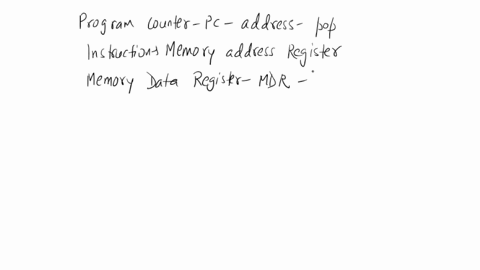 Program Counter - PC - address - pop
Instructions Memory address Register
Memory Data Register - MDR -